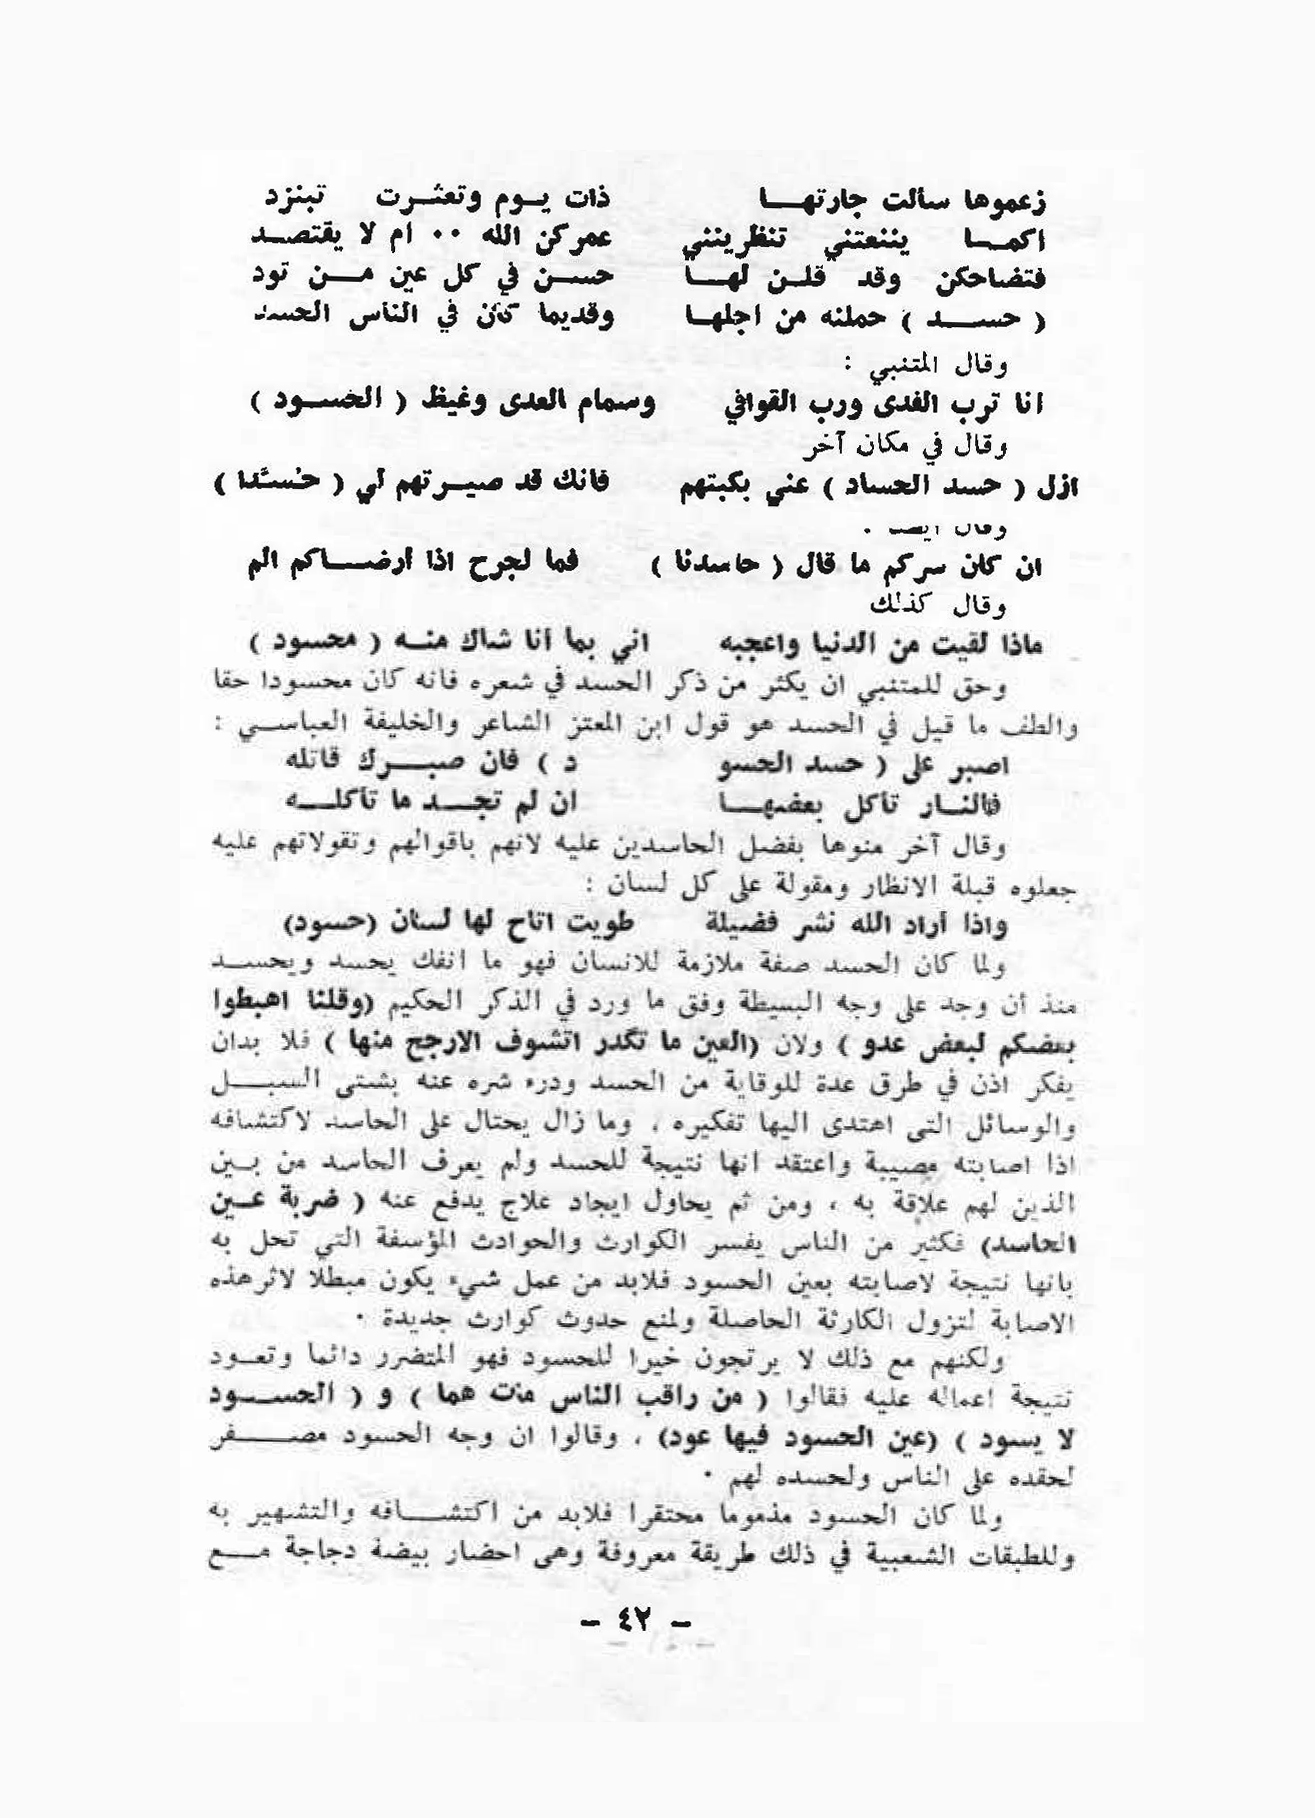 زعموها سألت جارتهـــا ذات يــوم وتعثــرت تبنزد
اكمــا ينعتنني تنظرينني عمركن الله ٠٠ ام لا يقتصــد
فتضاحكن وقد قلــن لهــا حســن في كل عين مــن تود
( حســـد ) حملنه من اجلهــا وقديما كان في الناس الحسد
وقال المتنبي :
انا ترب الندى ورب القوافي وسمام العدى وغيظ ( الحســود )
وقال في مكان آخر
ازل ( حسد الحساد ) عني بكبتهم فانك قد صيــرتهم لي ( حُسَّدا )
وقال ايضـا .
ان كان سركم ما قال ( حاسدنا ) فما لجرح اذا أرضــاكم الم
وقال كذلك
ماذا لقيت من الدنيا واعجبه اني بما انا شاك منــه ( محسود )
وحق للمتنبي ان يكثر من ذكر الحسد في شعره فانه كان محسودا حقا
والطف ما قيل في الحسد هو قول ابن المعتز الشاعر والخليفة العباســي :
اصبر على ( حسد الحسو د ) فان صبــرك قاتله
فالنــار تأكل بعضهــا ان لم تجــد ما تأكلــه
وقال آخر منوها بفضل الحاسدين عليه لانهم باقوالهم وتقولاتهم عليه
جعلوه قبلة الانظار ومقولة على كل لسان :
واذا أراد الله نشر فضيلة طويت اتاح لها لسان (حسود)
ولما كان الحسد صفة ملازمة للانسان فهو ما انفك يحسد ويحســد
منذ أن وجد على وجه البسيطة وفق ما ورد في الذكر الحكيم (وقلنا اهبطوا
بعضكم لبعض عدو ) ولان (العين ما تگدر اتشوف الارجح منها ) فلا بدان
يفكر اذن في طرق عدة للوقاية من الحسد ودرء شره عنه بشتى السبــل
والوسائل التى اهتدى اليها تفكيره ، وما زال يحتال على الحاسد لاكتشافه
اذا اصابته مصيبة واعتقد انها نتيجة للحسد ولم يعرف الحاسد من بــين
الذين لهم علاقة به ، ومن ثم يحاول ايجاد علاج يدفع عنه ( ضربة عــين
الحاسد) فكثير من الناس يفسر الكوارث والحوادث المؤسفة التي تحل به
بانها نتيجة لاصابته بعين الحسود فلابد من عمل شيء يكون مبطلا لاثرهذه
الاصابة لتزول الكارثة الحاصلة ولمنع حدوث كوارث جديدة ٠
ولكنهم مع ذلك لا يرتجون خيرا للحسود فهو المتضرر دائما وتعــود
نتيجة اعماله عليه فقالوا ( من راقب الناس مات هما ) و ( الحســود
لا يسود ) (عين الحسود فيها عود) ، وقالوا ان وجه الحسود مصــفر
لحقده على الناس ولحسده لهم ٠
ولما كان الحسود مذموما محتقرا فلابد من اكتشــافه والتشهير به
وللطبقات الشعبية في ذلك طريقة معروفة وهى احضار بيضة دجاجة مــع
- ٤٢ -